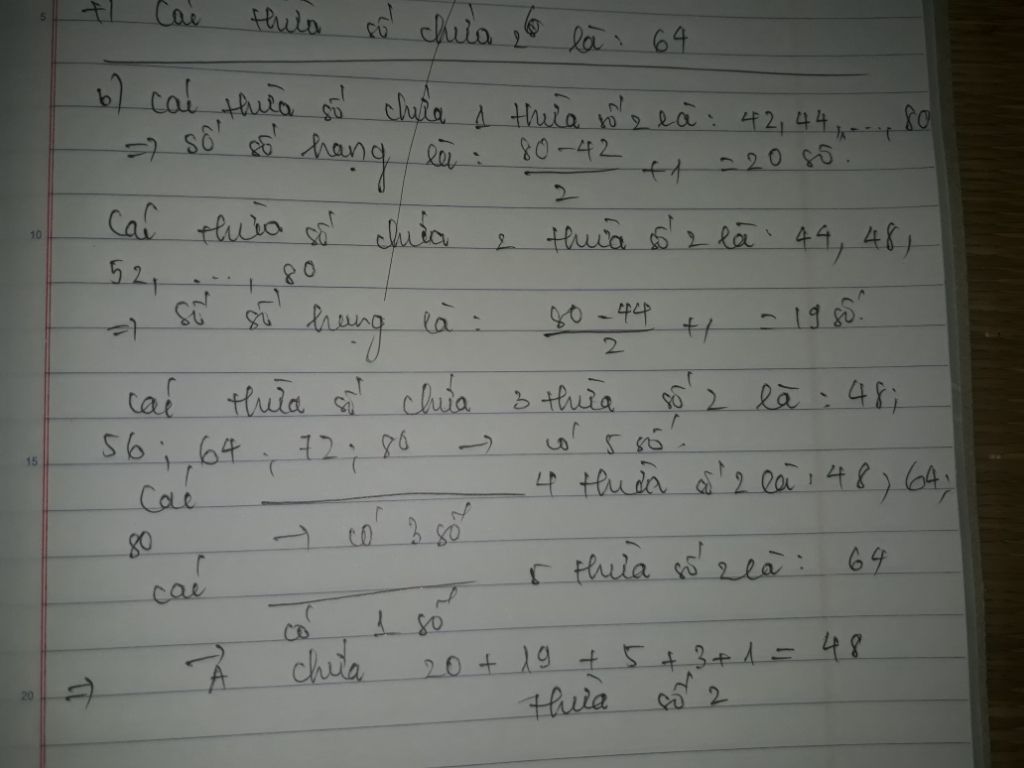 +) Các thừa số chứa 2^6 là: 64
b) Các thừa số chứa 1 thừa số 2 là: 42, 44, ..., 80
=> Số số hạng là: (80 - 42)/2 + 1 = 20 số.
Các thừa số chứa 2 thừa số 2 là: 44, 48,
52, ..., 80
=> Số số hạng là: (80 - 44)/2 + 1 = 19 số.
Các thừa số chứa 3 thừa số 2 là: 48;
56; 64; 72; 80 → có 5 số.
Các ——— 4 thừa số 2 là: 48; 64;
80 → có 3 số
Các ——— 5 thừa số 2 là: 64
có 1 số
=> → A chứa 20 + 19 + 5 + 3 + 1 = 48
thừa số 2